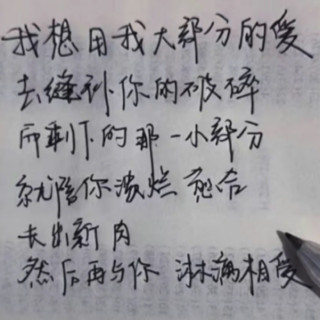 我想用我大部分的爱
去缝补你的破碎
而剩下的那一小部分
就陪你溃烂愈合
长出新肉
然后再与你 淋漓相爱